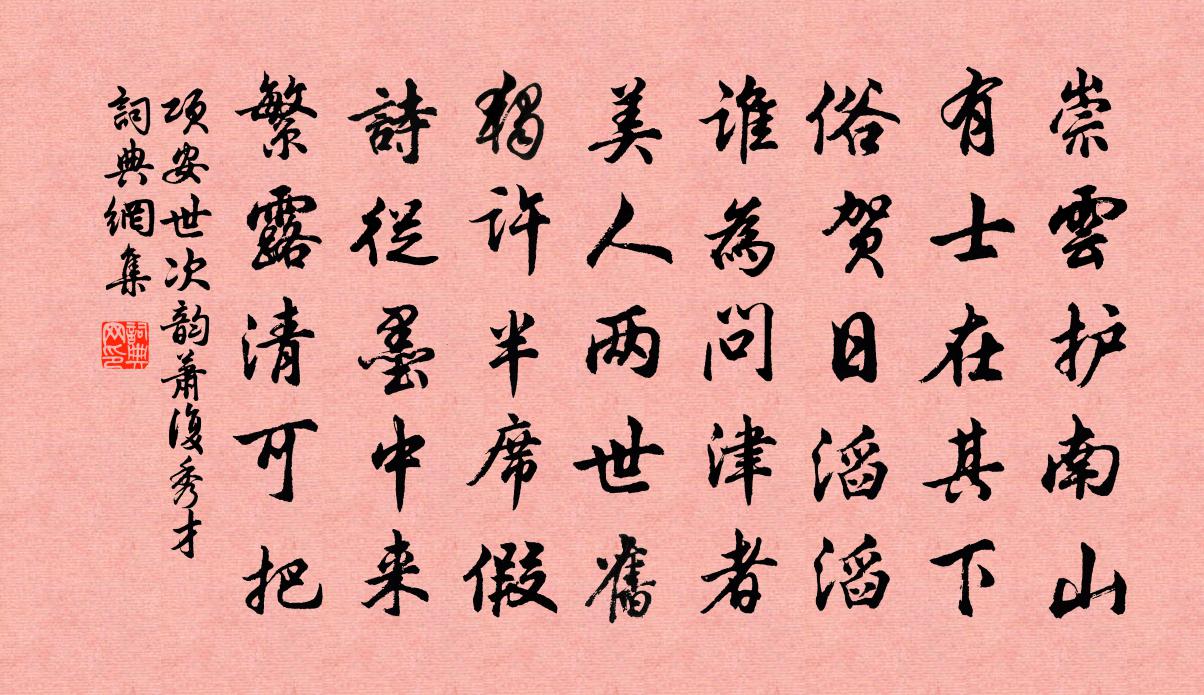 崇雲护南山
有士在其下
俗贺日滔滔
谁為问津者
美人两世舊
独许半席假
詩從墨中来
繁露清可把
项安世次韵萧復秀才
詞典網集
詞典网印